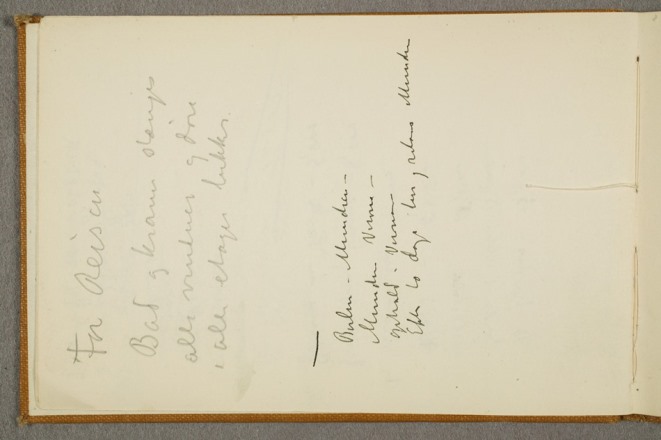 For Reisen
Bad og kraner stænges
alle vinduer og døre
i alle etager lukkes.
Berlin – München –
München Verona –
ophold – Verona
Efter to dage her og retour München